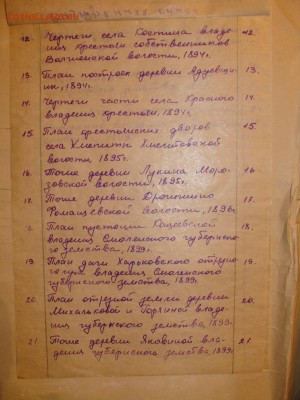 12. Чертеж села Костина владе-
ниц крестьян собственников 12.
Волгинской волости, 1894г.
13. План построек деревни 13.
1894г.
14. Чертеж части села Красного 14.
владениц крестьян, 1894г.
15. План крестьянских дворов 15.
села Хмелиты Хмелитовской
волости 1895г.
16. Тоже деревни Лукина Моро- 16.
зовской волости, 1895г.
17. Тоже деревни 17.
волости, 1896г.
План пустоши
владениц Смоленского губернско- 18.
го земства, 1899.
19. План дачи Харьковского отрезно- 19.
го владениц Смоленского
губернского земства, 1899.
20. План отрезной земли деревни
Михальковой и Горлиной владе- 20.
ниц губернского земства, 1899.
21. Тоже деревни Яковиной вла- 21.
дениц губернского земства, 1899.